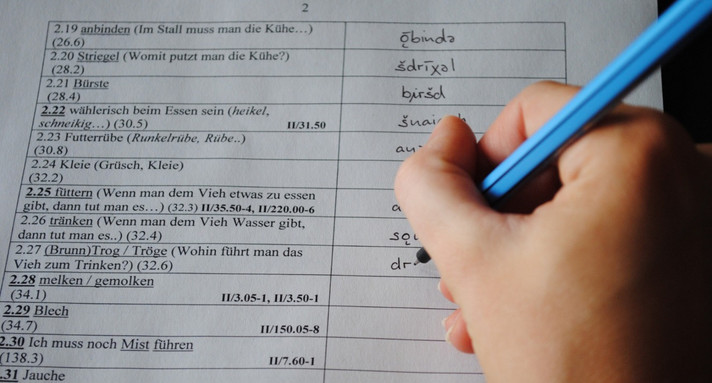 2
2.19 anbinden (Im Stall muss man die Kühe…)
(26.6)
ǭbində
2.20 Striegel (Womit putzt man die Kühe?)
(28.2)
šdrīχəl
2.21 Bürste
(28.4)
biršd
2.22 wählerisch beim Essen sein (heikel,
schneikig…) (30.5) II/31.50
2.23 Futterrübe (Runkelrübe, Rübe..)
(30.8)
2.24 Kleie (Grüsch, Kleie)
(32.2)
2.25 füttern (Wenn man dem Vieh etwas zu essen
gibt, dann tut man es…) (32.3) II/35.50-4, II/220.00-6
2.26 tränken (Wenn man dem Vieh Wasser gibt,
dann tut man es..) (32.4)
2.27 (Brunn)Trog / Tröge (Wohin führt man das
Vieh zum Trinken?) (32.6)
dr
2.28 melken / gemolken
(34.1) II/3.05-1, II/3.50-1
2.29 Blech
(34.7) II/150.05-8
2.30 Ich muss noch Mist führen
(138.3) II/7.60-1
.31 Jauche